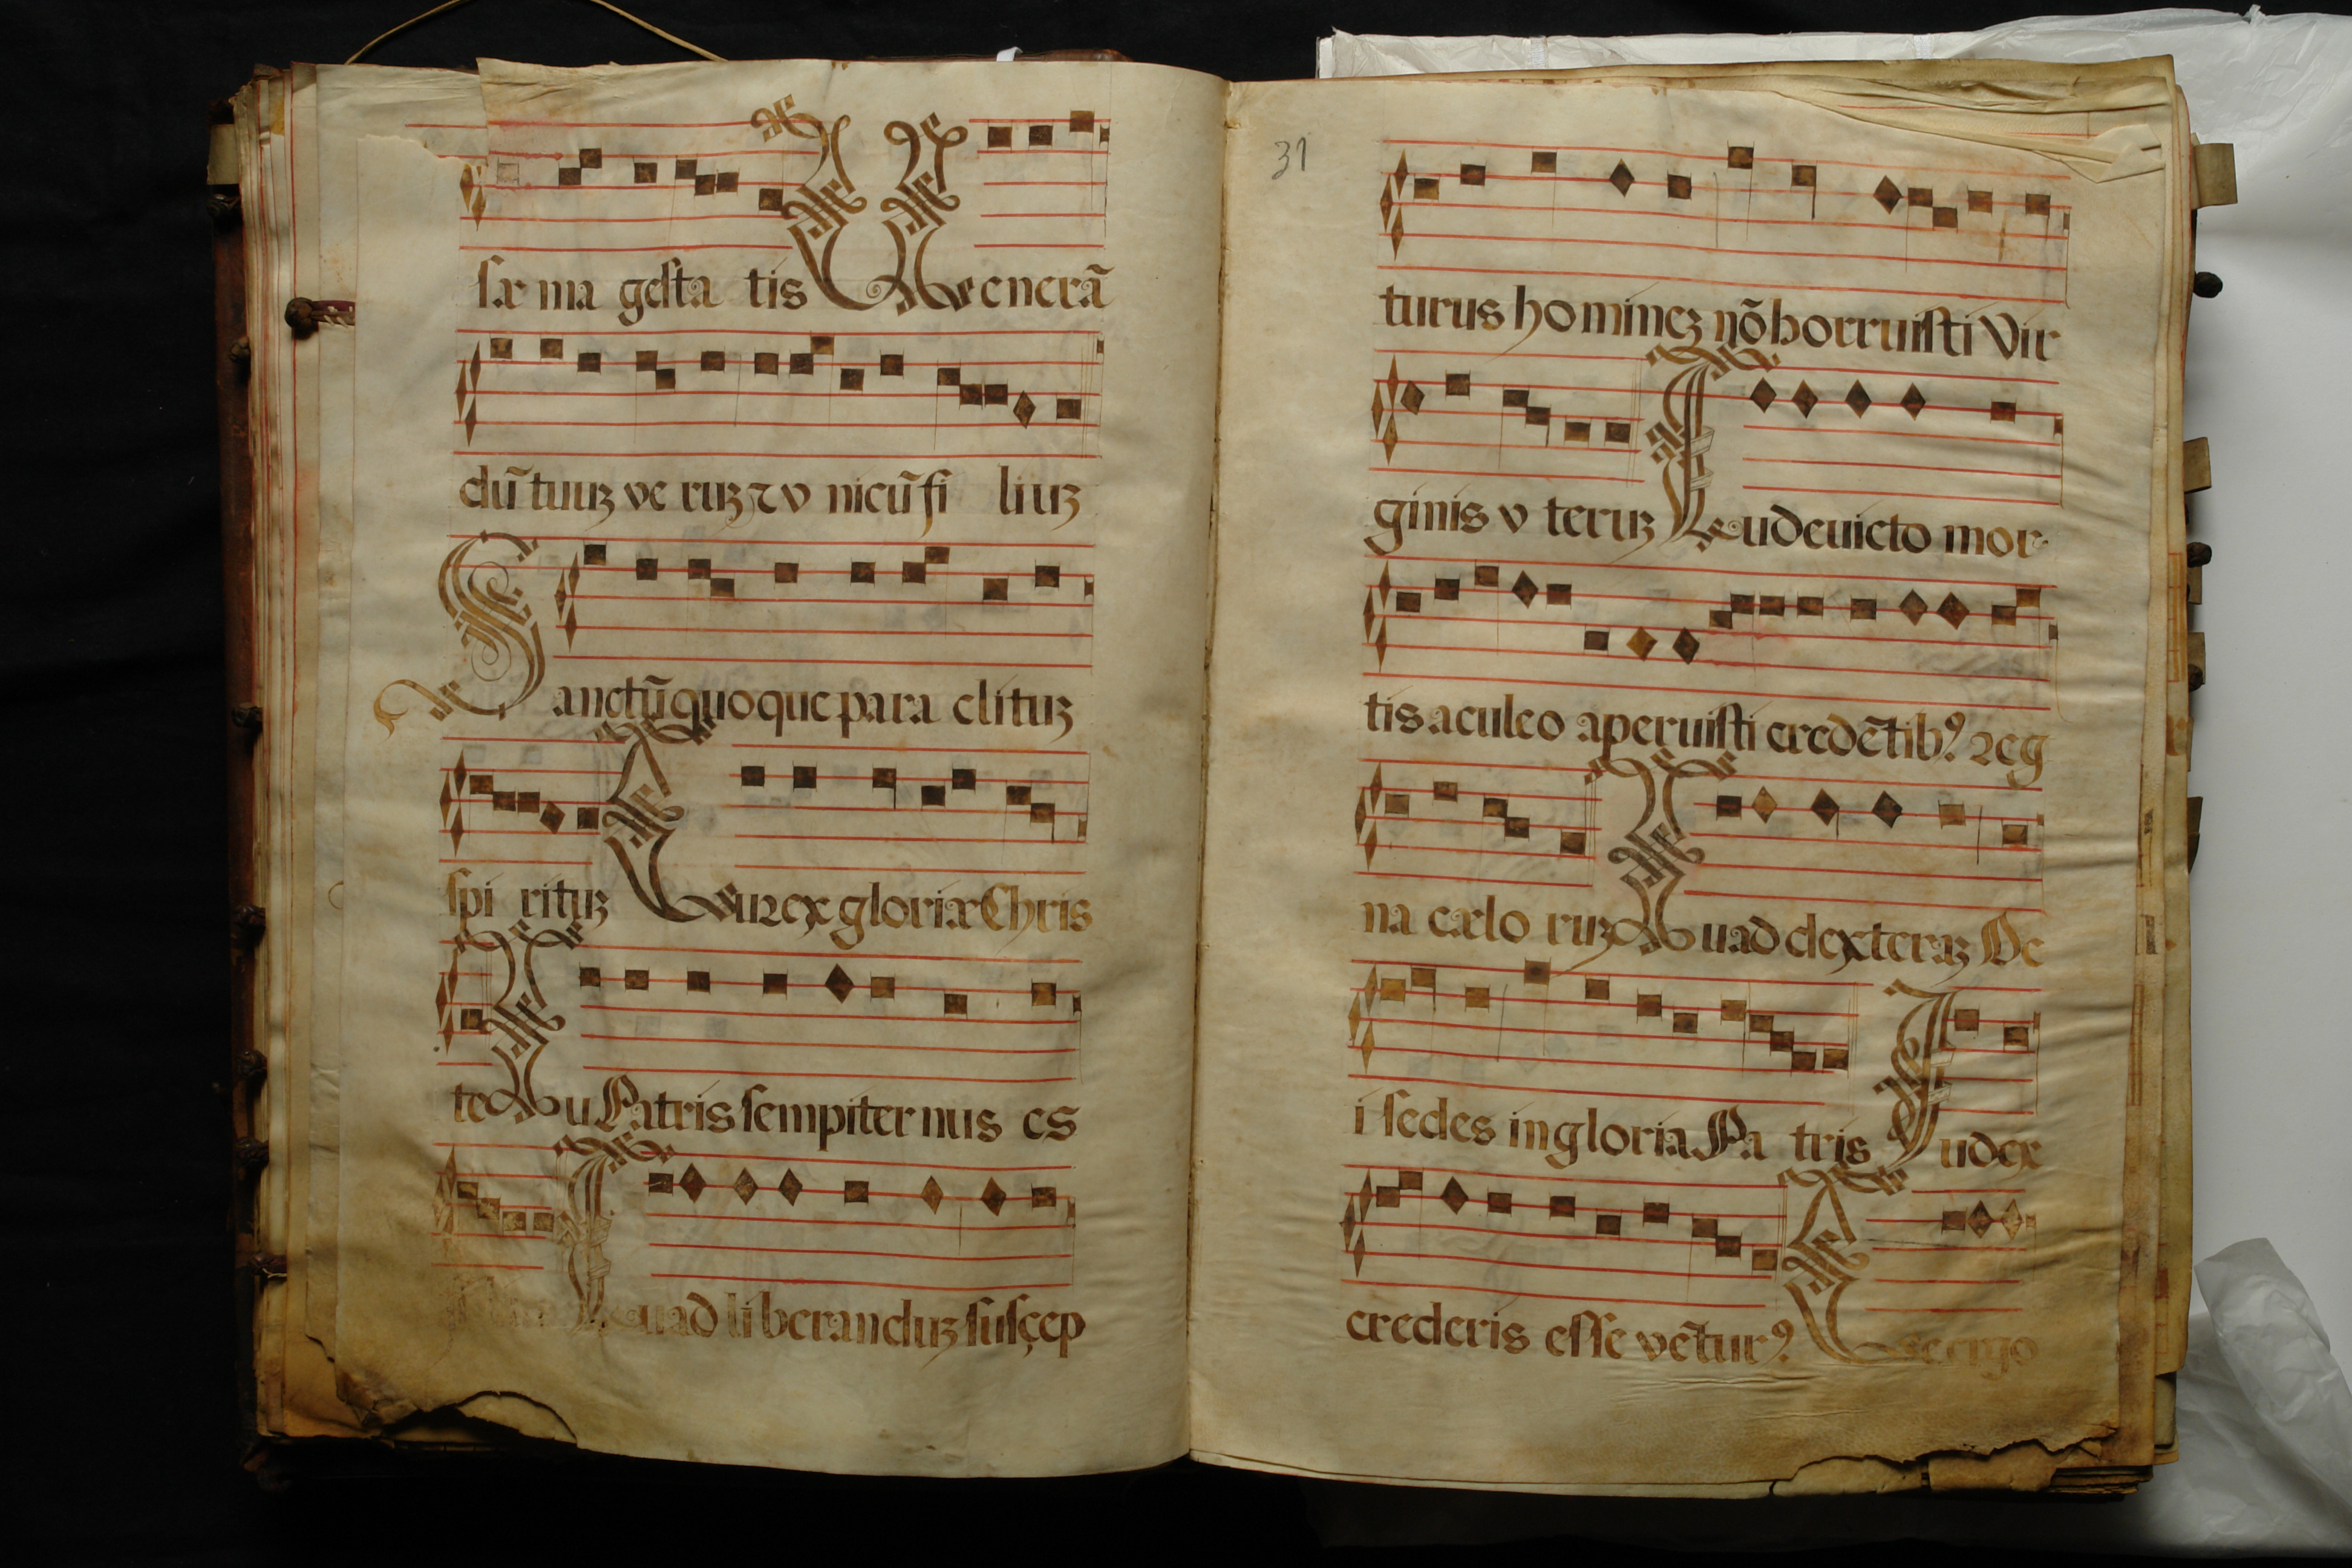 sæ ma gesta tis Venerā
dū tuuꝫ ve ruꝫ ⁊ v nicū fi liuꝫ
Sanctū quoque para clituꝫ
spi rituꝫ Tu rex gloriæ Chris
te Tu Patris sempiter nus es
Tu ad li beranduꝫ suscep
31
turus ho mineꝫ nō horruisti Vir
ginis v teruꝫ Tu devicto mor
tis aculeo aperuisti credētibꝰ reg
na cælo ruꝫ Tu ad dexteraꝫ De
i sedes in gloria Pa tris Iudex
crederis esse vēturꝰ Te ergo